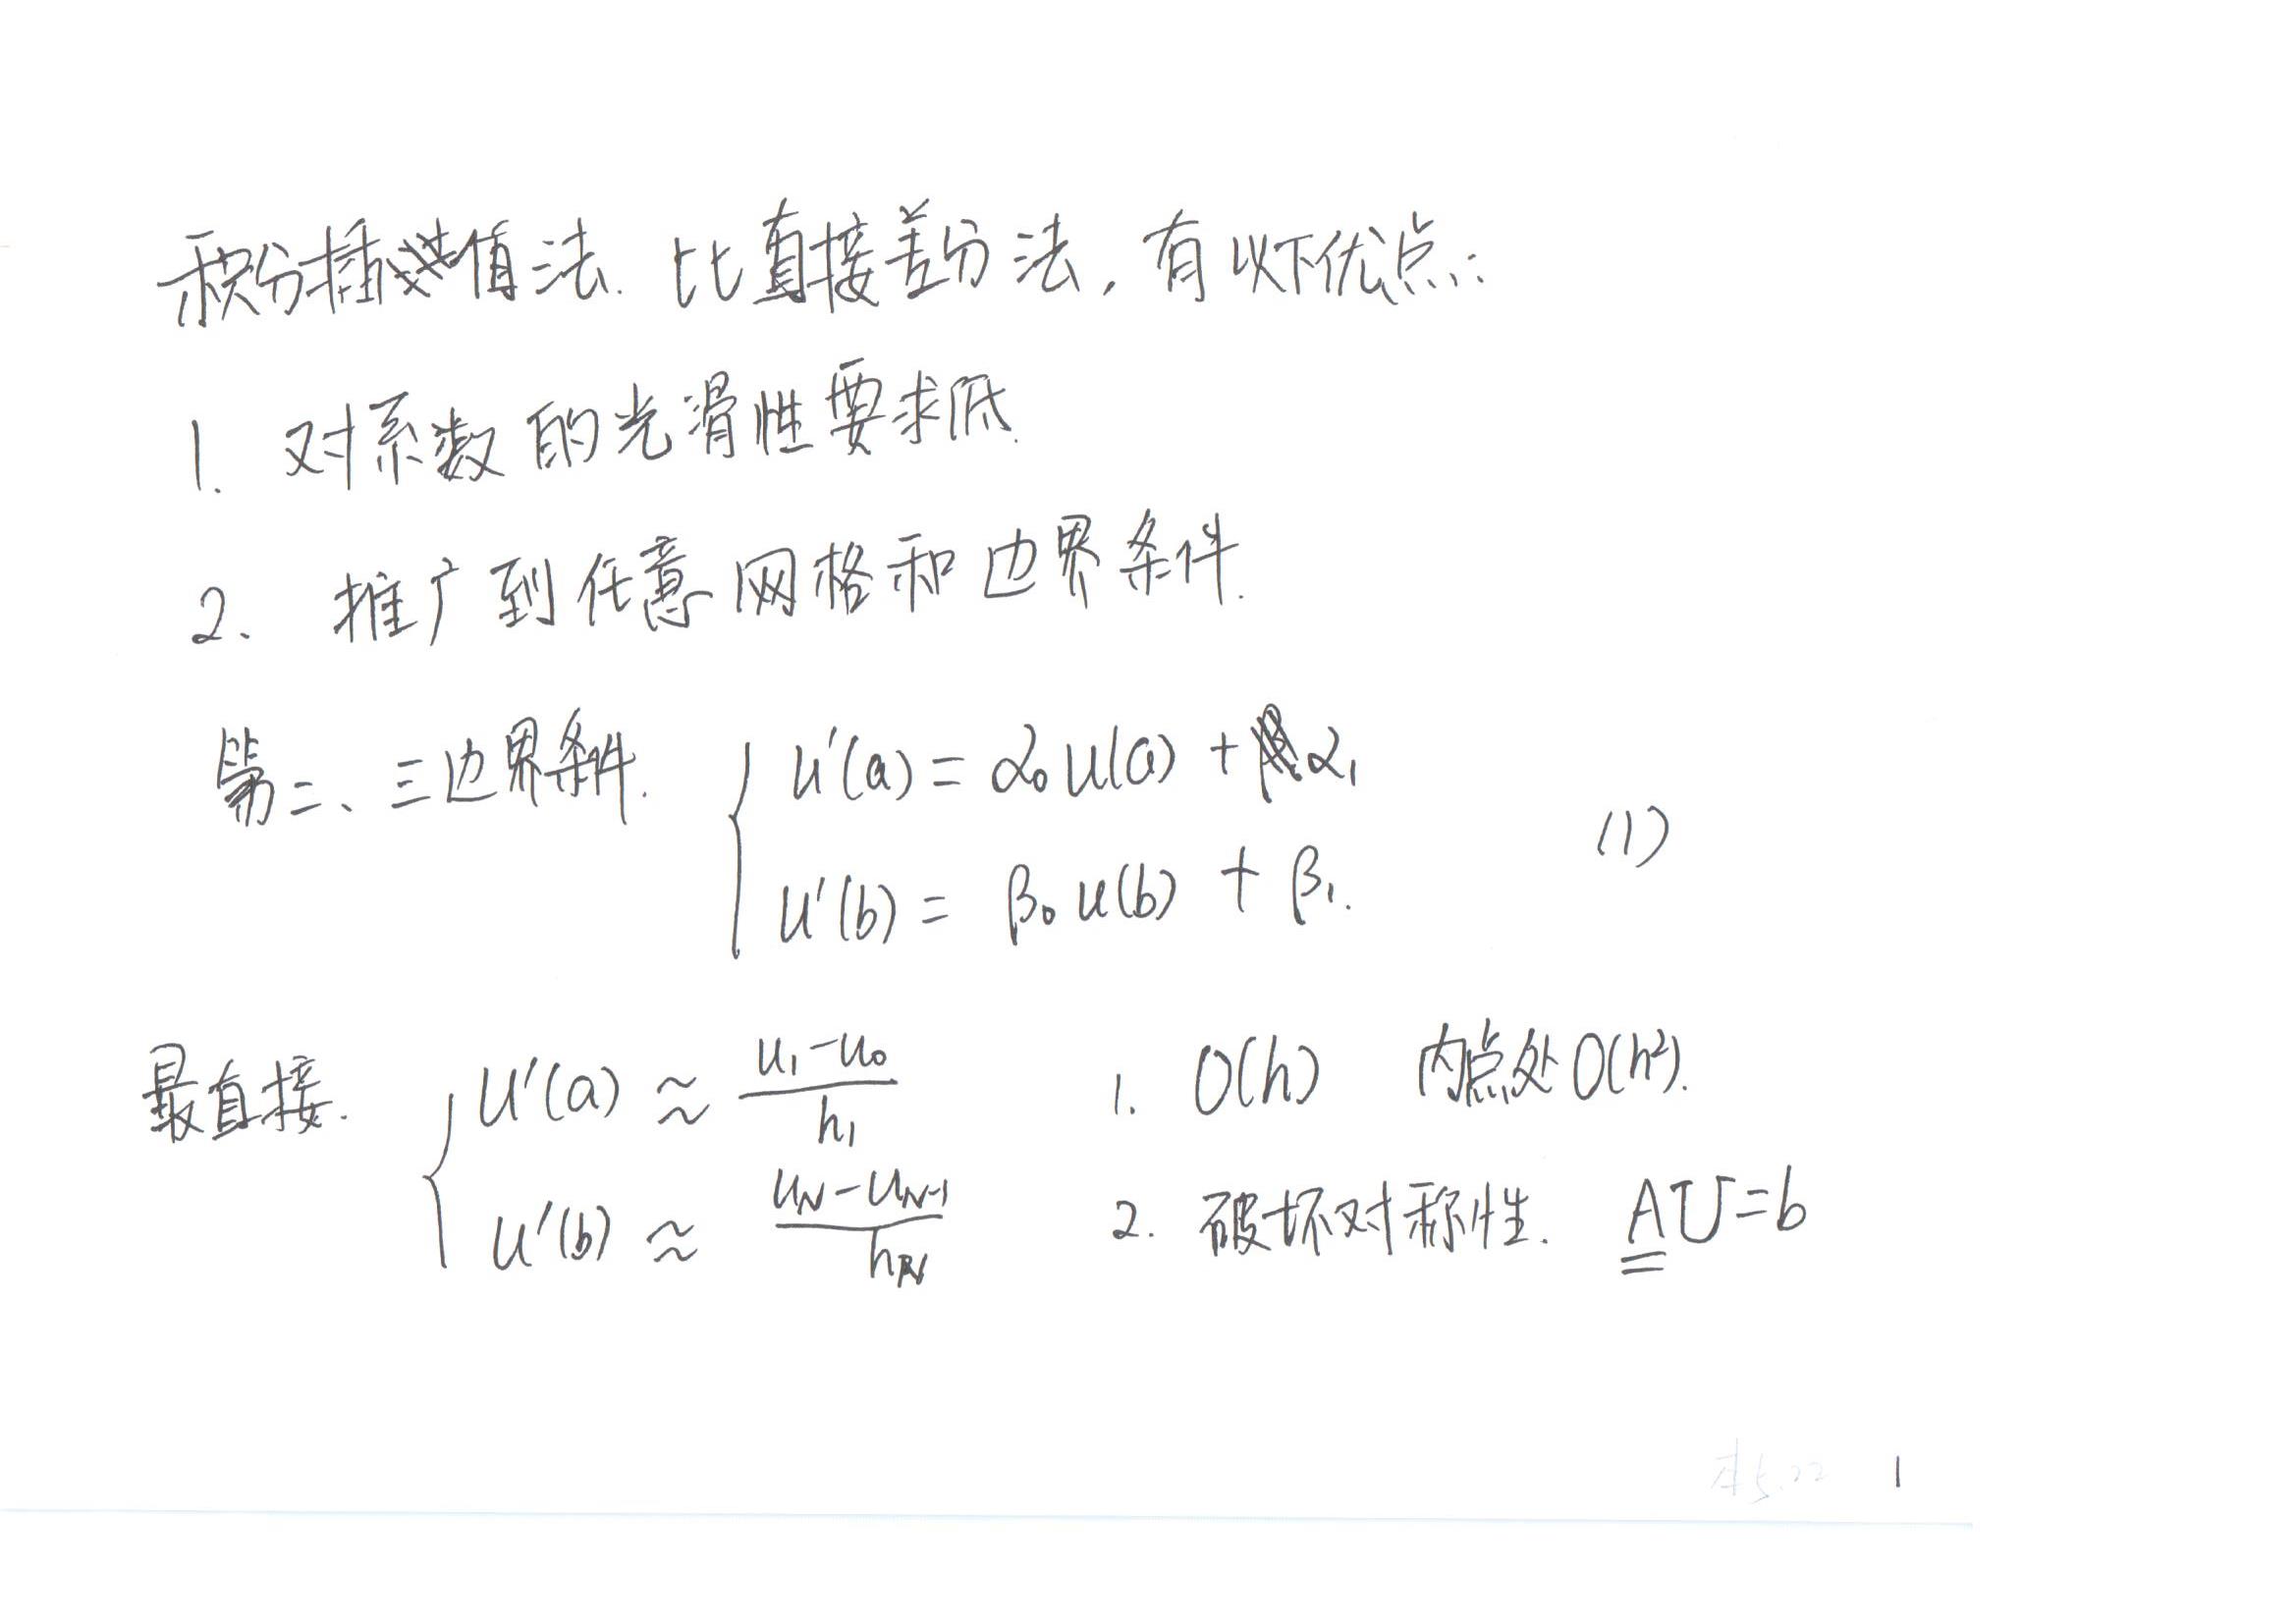 积分插值法. 比直接差分法, 有以下优点:
1. 对系数的光滑性要求低.
2. 推广到任意网格和边界条件.
第二、三边界条件. { u'(a) = α₀u(a) + α₁
u'(b) = β₀u(b) + β₁. (1)
最直接. { u'(a) ≈ (u₁-u₀)/h₁ 1. O(h) 内点处O(h²).
u'(b) ≈ (u_N-u_{N-1})/h_N 2. 破坏对称性. AU=b
1